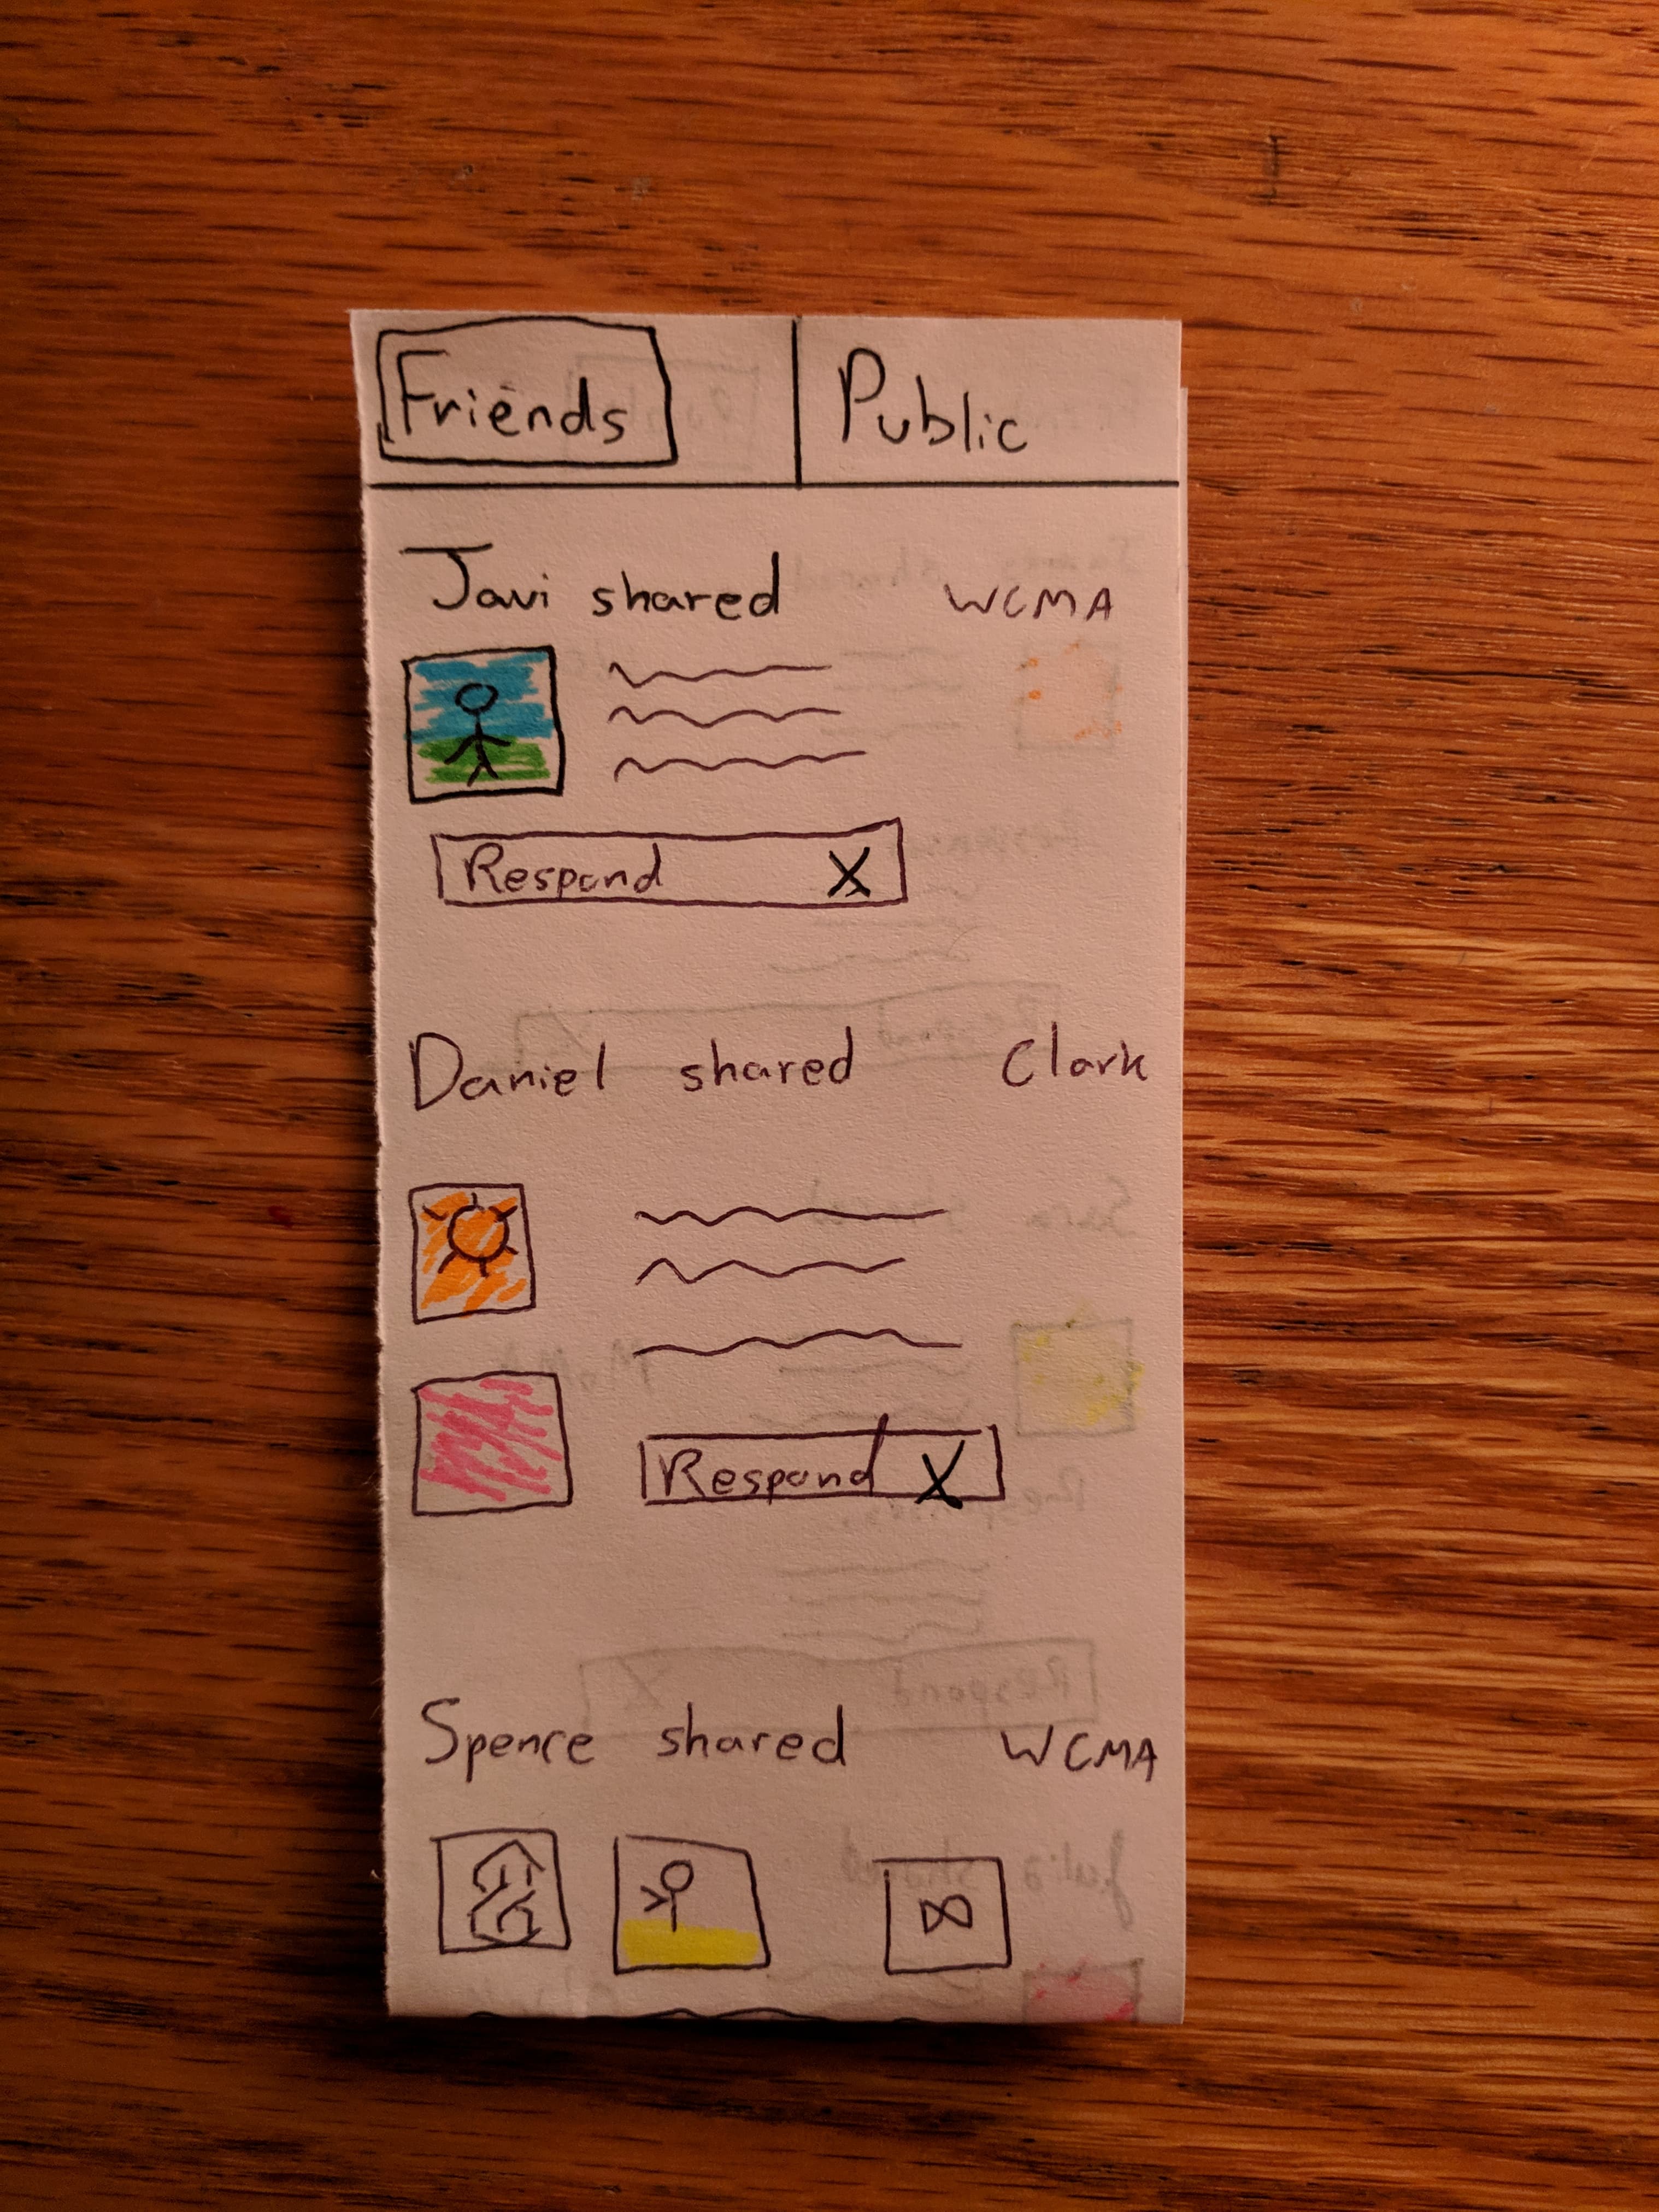 Friends Public
Javi shared WCMA
Respond X
Daniel shared Clark
Respond X
Spence shared WCMA